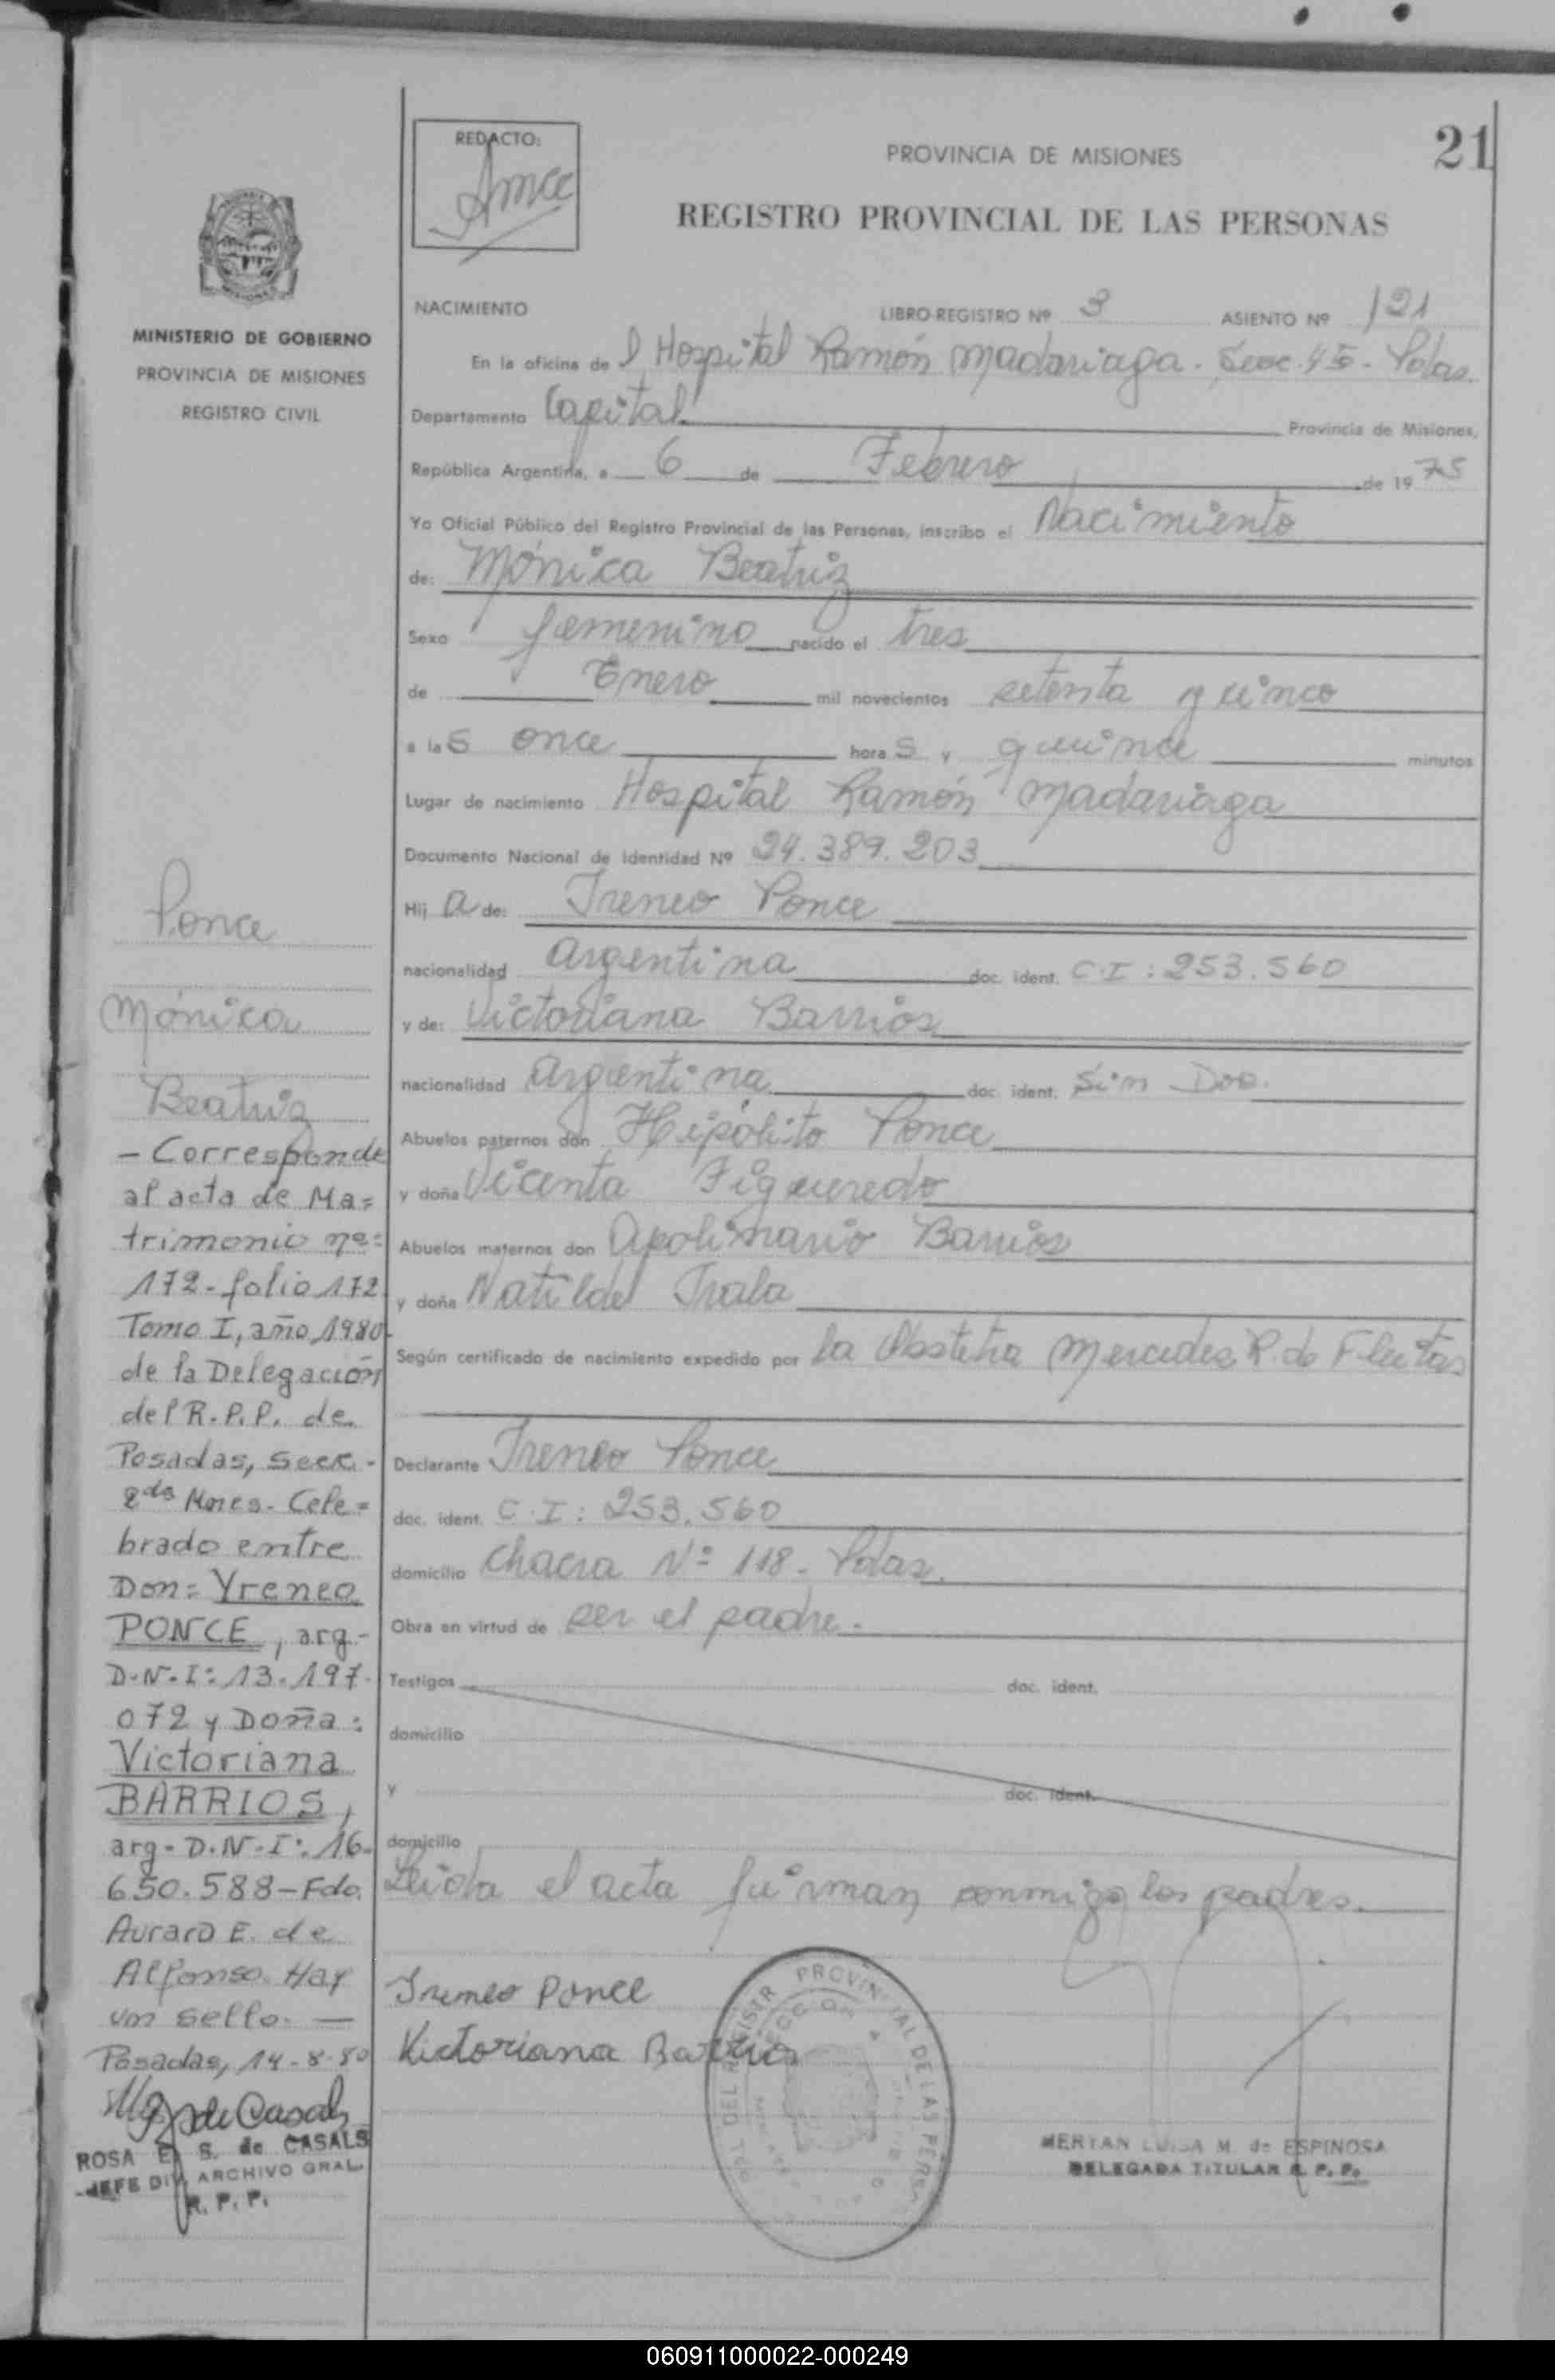 21
REDACTO:
PROVINCIA DE MISIONES
REGISTRO PROVINCIAL DE LAS PERSONAS
MINISTERIO DE GOBIERNO
PROVINCIA DE MISIONES
REGISTRO CIVIL
NACIMIENTO LIBRO-REGISTRO Nº 3 ASIENTO Nº 121
En la oficina de l Hospital Ramón Madariaga - Secc. 4ª - Pdas.
Departamento Capital Provincia de Misiones,
República Argentina, a 6 de Febrero de 1975
Yo Oficial Público del Registro Provincial de las Personas, inscribo el Nacimiento
de: Mónica Beatriz
Sexo femenino nacido el tres
de Enero mil novecientos setenta y cinco
a las once horas y quince minutos
Lugar de nacimiento Hospital Ramón Madariaga
Documento Nacional de Identidad Nº 24.389.203
Hija de: Ireneo Ponce
nacionalidad argentina doc. ident. C.I: 253.560
y de: Victoriana Barrios
nacionalidad argentina doc. ident. Sin Doc.
Abuelos paternos don Hipólito Ponce
y doña Vicenta Figueredo
Abuelos maternos don Apolinario Barrios
y doña Natilde Irala
Según certificado de nacimiento expedido por la Obstetra Mercedes R. de Fleitas
Declarante Ireneo Ponce
doc. ident. C.I: 253.560
domicilio Chacra Nº 118 - Pdas.
Obra en virtud de ser el padre.-
Testigos doc. ident.
domicilio
y doc. ident.
domicilio
Leida el acta firman conmigo los padres.
Ireneo Ponce
Victoriana Barrios
MERYAN LUISA M. de ESPINOSA
DELEGADA TITULAR R. P. P.
Ponce
Mónica
Beatriz
- Corresponde
al acta de Ma=
trimonio nº:
172 - folio 172
Tomo I, año 1980-
de la Delegación
del R.P.P. de
Posadas, Secc.-
2da Mnes.- Cele=
brado entre
Don= Yreneo
PONCE, arg.-
D.N.I: 13.197.
072 y Doña:
Victoriana
BARRIOS,
arg- D.N.I: 16.
650.588 - Fdo.
E. de
Alfonso Hay
un sello. —
Posadas, 14-8-80
ROSA E. S. de CASALS
JEFE DIV. ARCHIVO GRAL.
R. P. P.
060911000022-000249